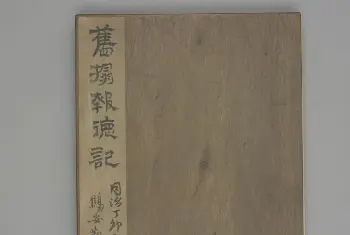 舊搨報德記
同治丁卯
鶴安